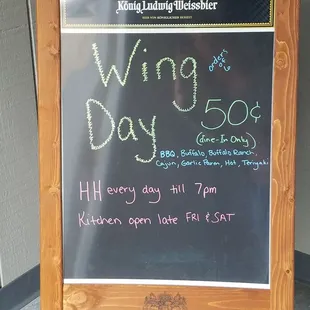 König Ludwig Weissbier
Wing
orders of 6
Day
50¢
(Dine-In Only)
BBQ, Buffalo, Buffalo Ranch,
Cajun, Garlic Parm, Hot, Teriyaki
HH every day till 7pm
Kitchen open late FRI & SAT